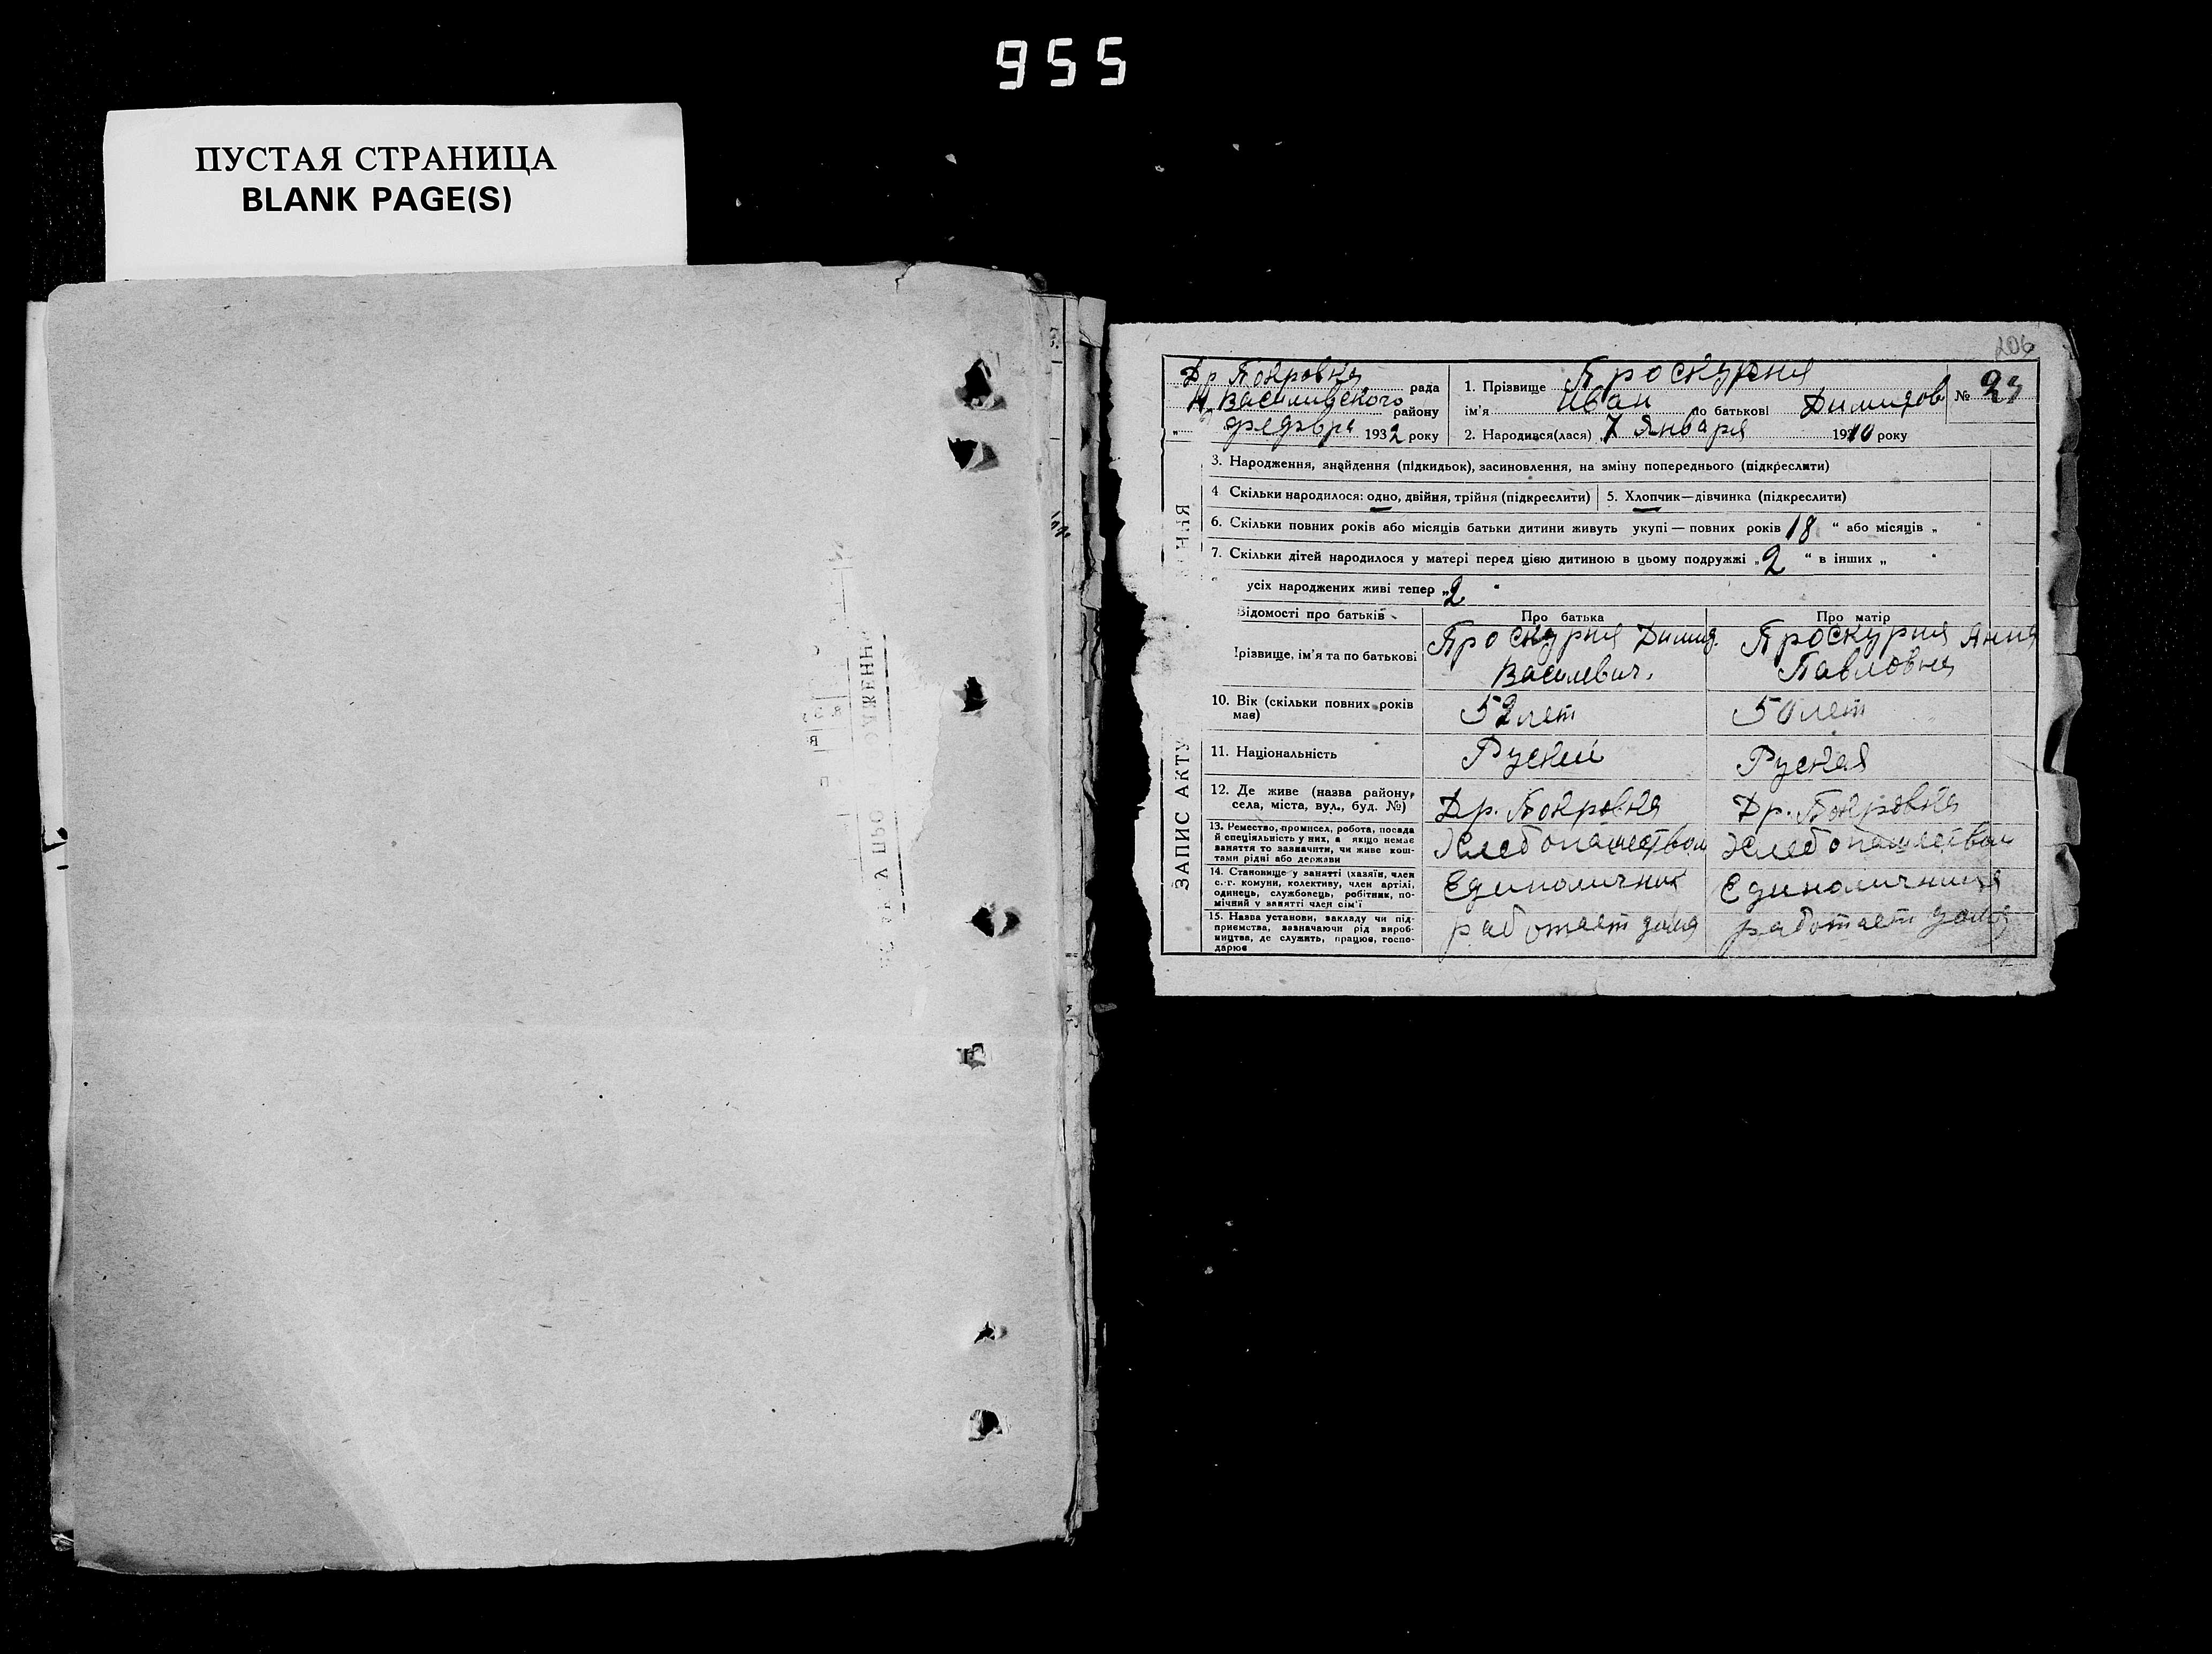 955
ПУСТАЯ СТРАНИЦА
BLANK PAGE(S)
206
Др Покровка рада
Н Василивского району
февра 1932 року
1. Прізвище Проскурня
№ 23
ім'я Иван по батькові Димидов
2. Народився(лася) 7 Января 1910 року
3. Народження, знайдення (підкидьок), засиновлення, на зміну попереднього (підкреслити)
4 Скільки народилося: одно, двійня, трійня (підкреслити) 5. Хлопчик—дівчинка (підкреслити)
6. Скільки повних років або місяців батьки дитини живуть укупі — повних років 18 " або місяців „ "
7. Скільки дітей народилося у матері перед цією дитиною в цьому подружжі „ 2 " в інших „ "
усіх народжених живі тепер „ 2 "
Відомості про батьків Про батька Про матір
ірізвище, ім'я та по батькові Проскурня Димид. Проскурня Анна
Василевич. Павловна
10. Вік (скільки повних років має) 52 лет 50 лет
11. Національність Руский Руская
12. Де живе (назва району, села, міста, вул., буд. №) Др. Покровка Др. Покровка
13. Ремество, промисел, робота, посада й спеціяльність у них, а якщо немає заняття то зазначити, чи живе коштами рідні або держави Хлебопашеством Хлебопашеством
14. Становище у занятті (хазяїн, член с.-г. комуни, колективу, член артілі, одинець, службовець, робітник, помічний у занятті член сім'ї Единоличник Единоличница
15. Назва установи, закладу чи підприємства, зазначаючи рід виробництва, де служить, працює, господарює работает дома работает дома
ЗАПИС АКТУ